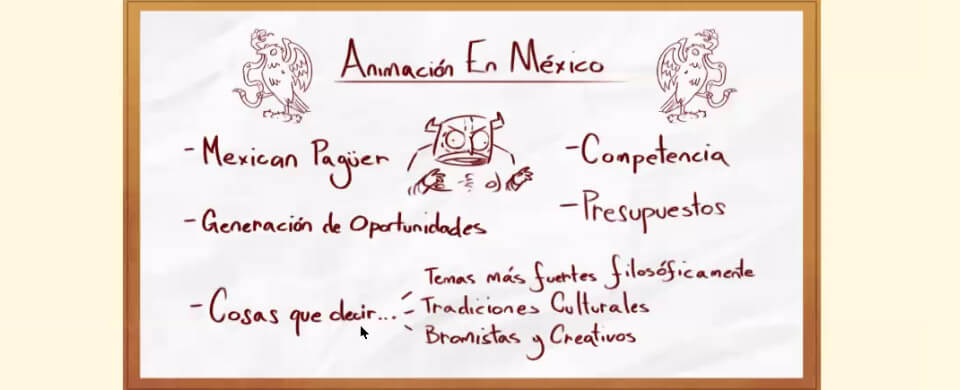 Animación En México
- Mexican Pagüer
- Generación de Oportunidades
- Competencia
- Presupuestos
- Cosas que decir...
Temas más fuertes filosóficamente
- Tradiciones Culturales
Bromistas y Creativos